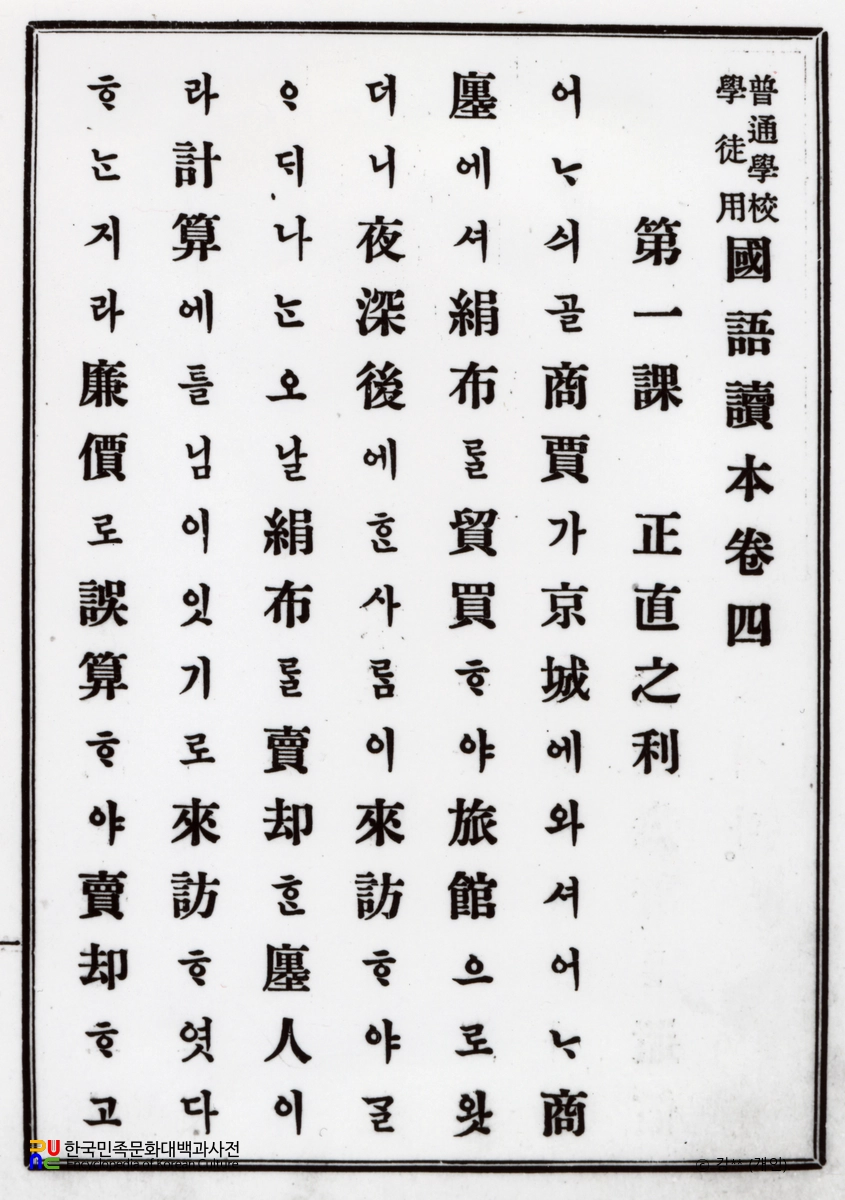 普通學校
學徒用
國語讀本卷四
第一課 正直之利
어ᄂᆞ싀골商賈가京城에와셔어ᄂᆞ商
廛에셔絹布ᄅᆞᆯ貿買ᄒᆞ야旅館으로왓
더니夜深後에ᄒᆞᆫ사ᄅᆞᆷ이來訪ᄒᆞ야ᄀᆞᆯ
ᄋᆞᄃᆡ나ᄂᆞᆫ오날絹布ᄅᆞᆯ賣却ᄒᆞᆫ廛人이
라計算에틀님이잇기로來訪ᄒᆞ엿다
ᄒᆞᄂᆞᆫ지라廉價로誤算ᄒᆞ야賣却ᄒᆞ고
한국민족문화대백과사전
Encyclopedia of Korean Culture
(개인)